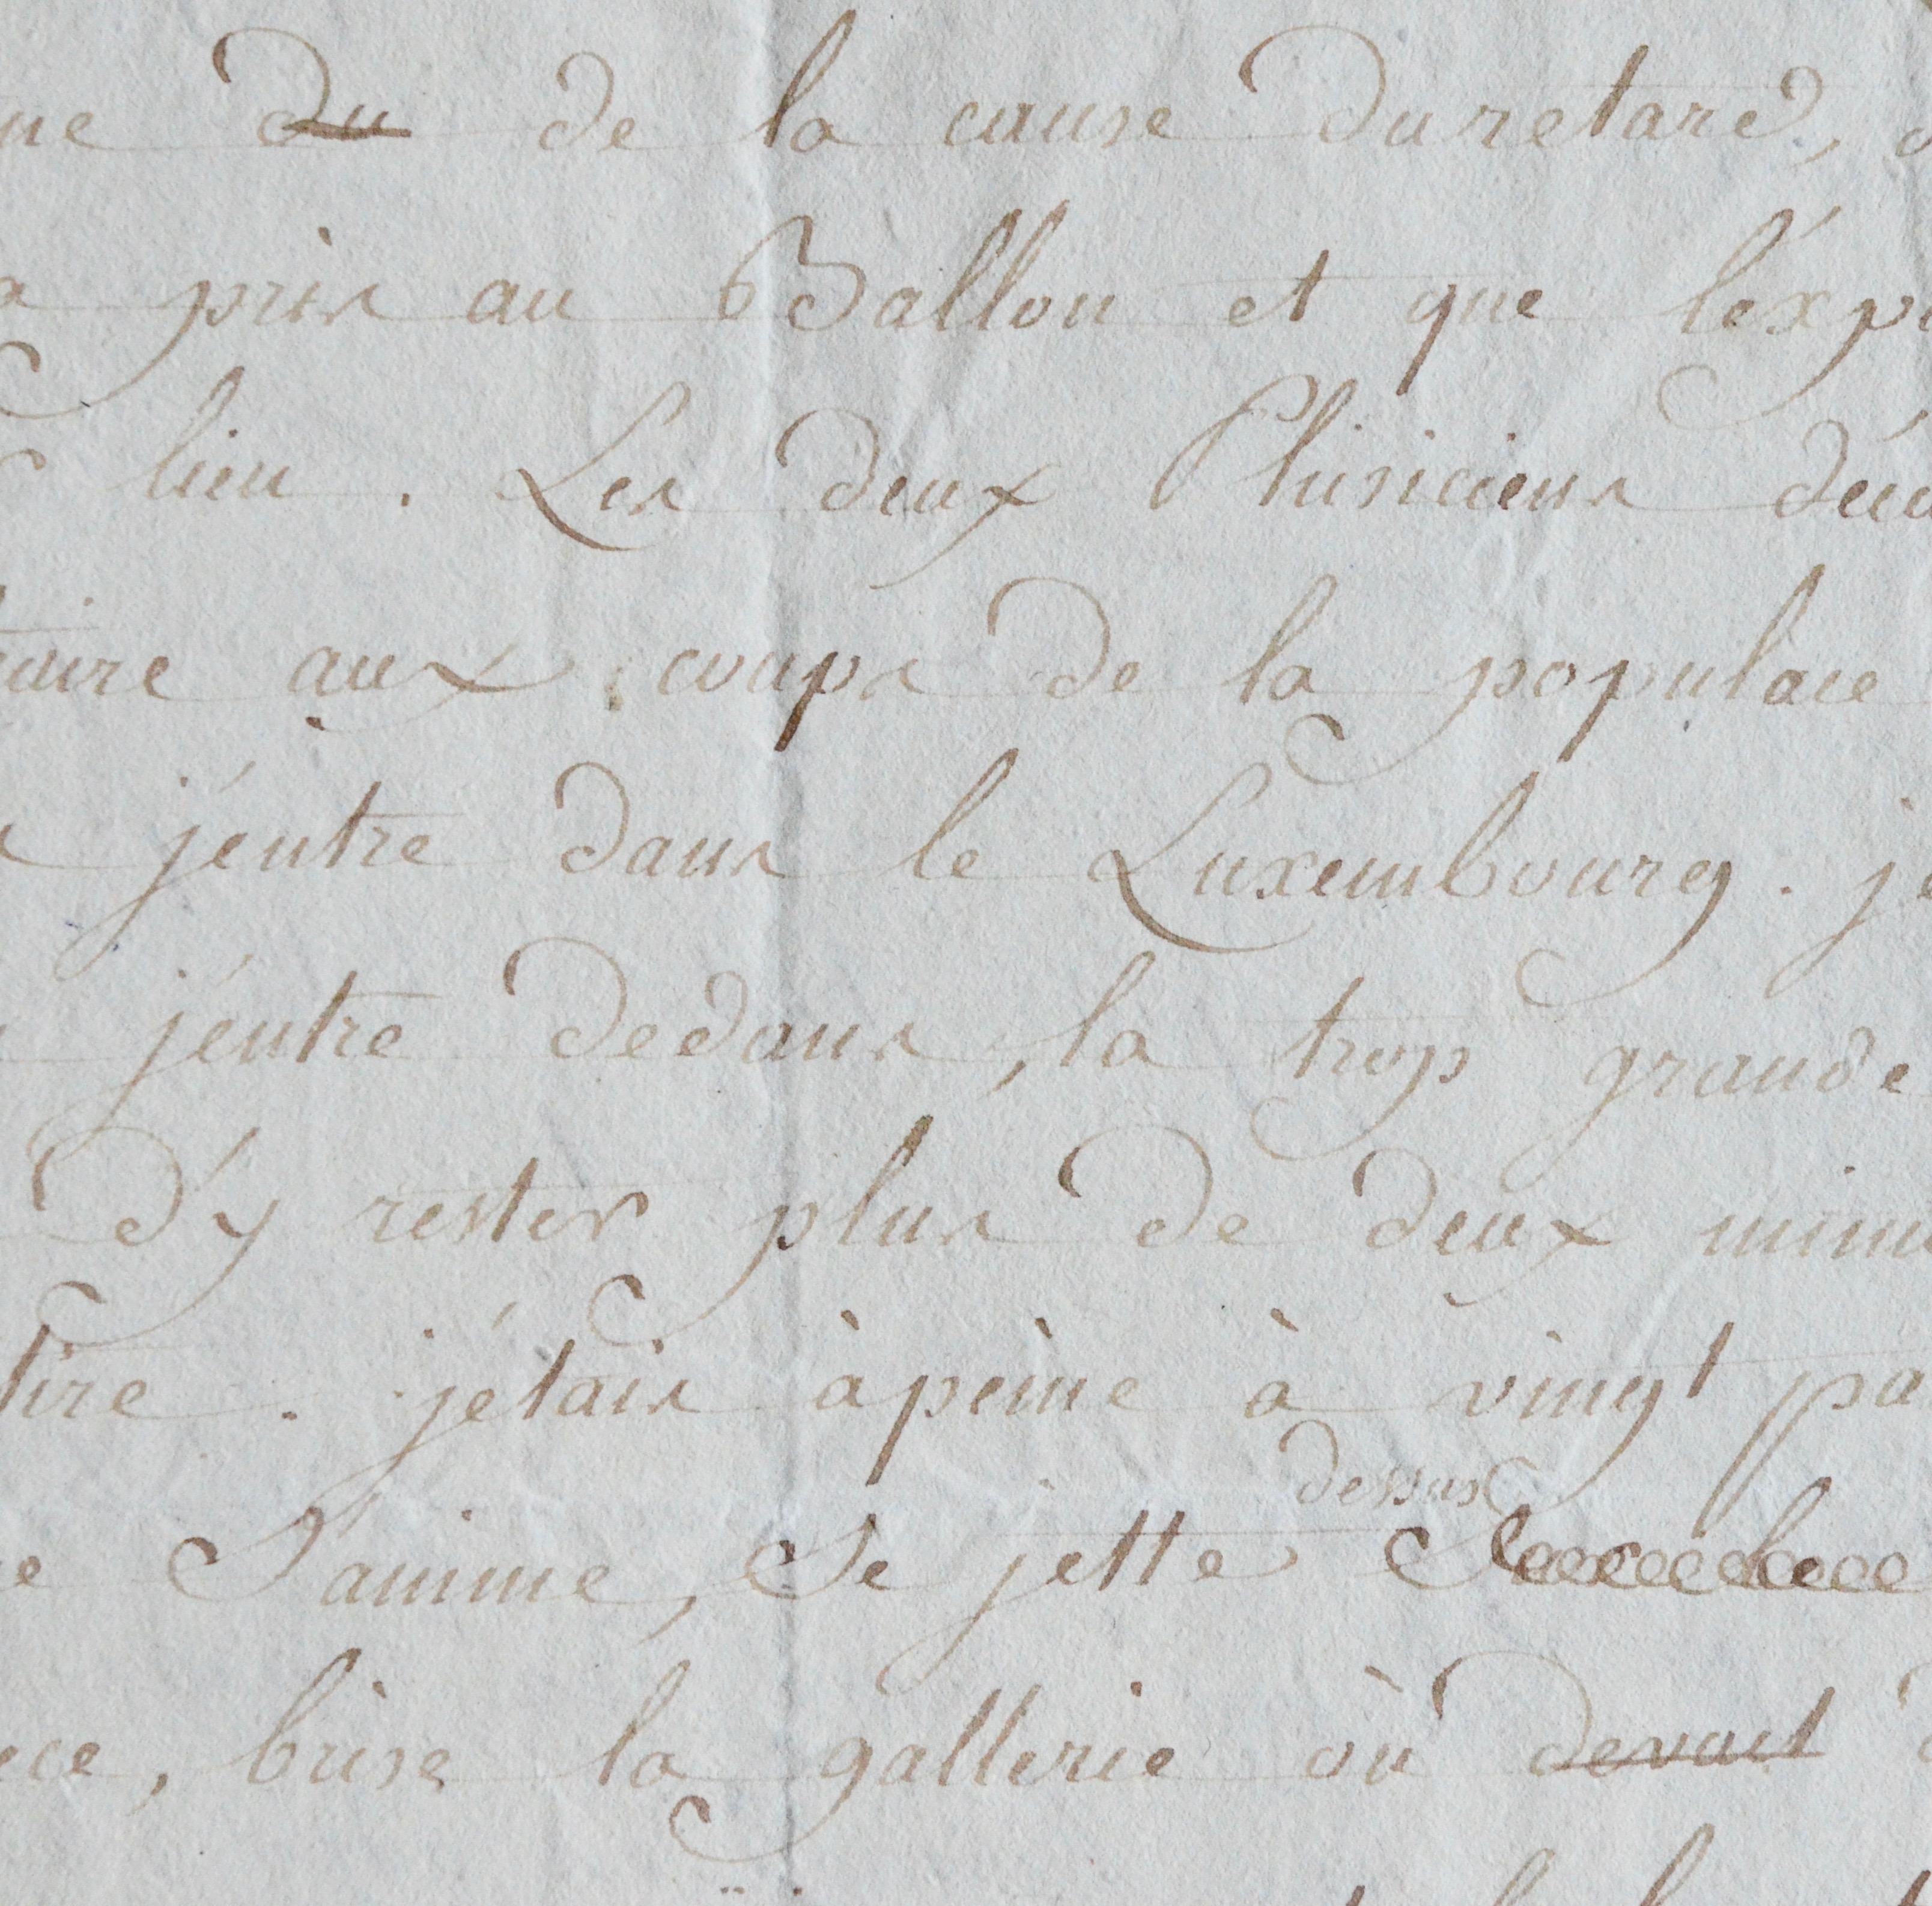 ne du de la cause du retard,
a pris au Ballon et que l'éxp
lieu. Les deux Phisiciens déc
aire aux coups de la populace
j'entre dans le Luxembourg. j
j'entre dedans, la trop grande
d'y rester plus de deux minu
tire. j'étais àpeine à vingt pa
dessus
e S'anime, Se jette
ece, brise la gallerie où devait